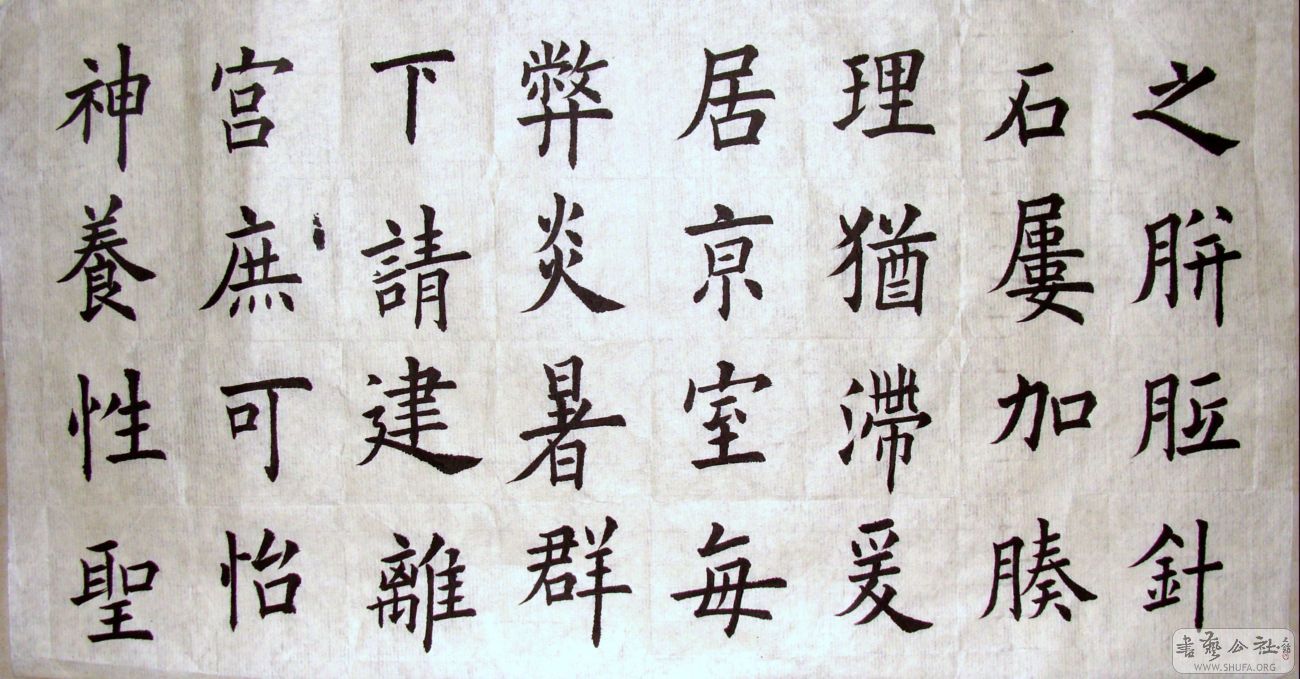 之胼胝針
石屢加腠
理猶滯爰
居亰室每
弊炎暑群
下請建離
宫庶可怡
神養性聖
書藝公社
WWW.SHUFA.ORG